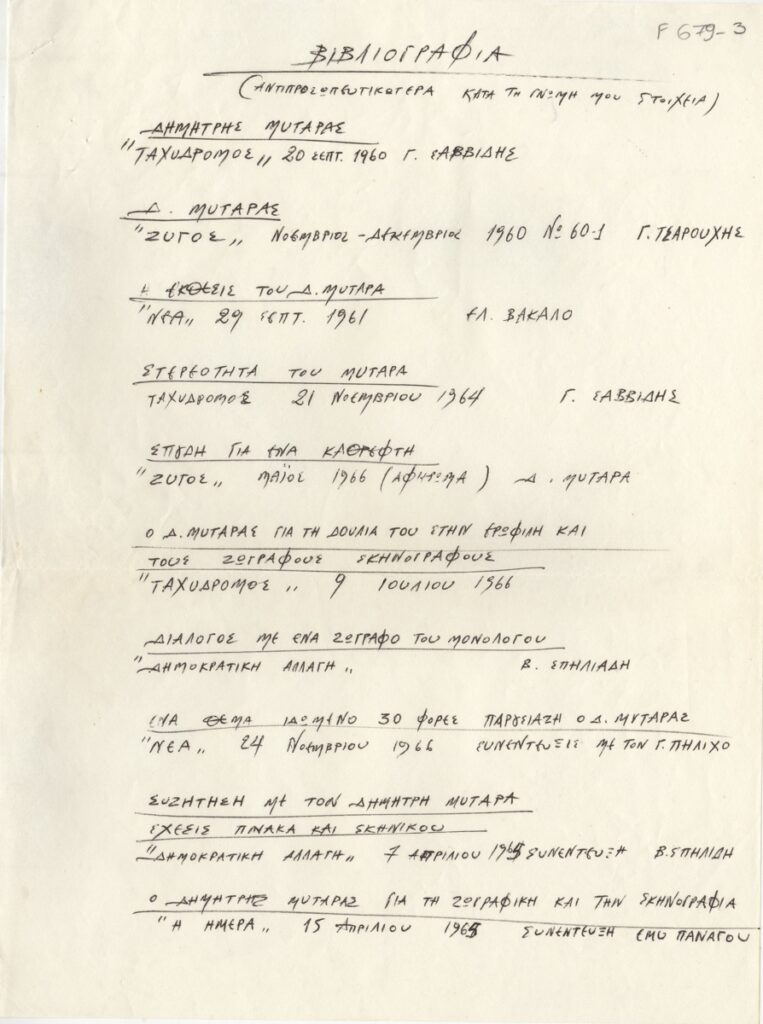 F 679-3
ΒΙΒΛΙΟΓΡΑΦΙΑ
(ΑΝΤΙΠΡΟΣΩΠΕΥΤΙΚΩΤΕΡΑ ΚΑΤΑ ΤΗ ΓΝΩΜΗ ΜΟΥ ΣΤΟΙΧΕΙΑ)
ΔΗΜΗΤΡΗΣ ΜΥΤΑΡΑΣ
"ΤΑΧΥΔΡΟΜΟΣ„ 20 ΣΕΠΤ. 1960 Γ. ΣΑΒΒΙΔΗΣ
Δ. ΜΥΤΑΡΑΣ
"ΖΥΓΟΣ„ ΝΟΕΜΒΡΙΟΣ - ΔΕΚΕΜΒΡΙΟΣ 1960 Νο 60-1 Γ. ΤΣΑΡΟΥΧΗΣ
Η ΕΚΘΕΣΙΣ ΤΟΥ Δ. ΜΥΤΑΡΑ
"ΝΕΑ„ 29 ΣΕΠΤ. 1961 ΕΛ. ΒΑΚΑΛΟ
ΣΤΕΡΕΟΤΗΤΑ ΤΟΥ ΜΥΤΑΡΑ
ΤΑΧΥΔΡΟΜΟΣ 21 ΝΟΕΜΒΡΙΟΥ 1964 Γ. ΣΑΒΒΙΔΗΣ
ΣΠΥΔΗ ΓΙΑ ΕΝΑ ΚΑΘΡΕΦΤΗ
"ΖΥΓΟΣ„ ΜΑΪΟΣ 1966 (ΑΦΙΕΡΩΜΑ) Δ. ΜΥΤΑΡΑ
Ο Δ. ΜΥΤΑΡΑΣ ΓΙΑ ΤΗ ΔΟΥΛΙΑ ΤΟΥ ΣΤΗΝ ΕΡΩΦΙΛΗ ΚΑΙ
ΤΟΥΣ ΖΩΓΡΑΦΟΥΣ ΣΚΗΝΟΓΡΑΦΟΥΣ
"ΤΑΧΥΔΡΟΜΟΣ„ 9 ΙΟΥΛΙΟΥ 1966
ΔΙΑΛΟΓΟΣ ΜΕ ΕΝΑ ΖΩΓΡΑΦΟ ΤΟΥ ΜΟΝΟΛΟΓΟΥ
"ΔΗΜΟΚΡΑΤΙΚΗ ΑΛΛΑΓΗ„ Β. ΣΠΗΛΙΑΔΗ
ΕΝΑ ΘΕΜΑ ΙΔΩΜΕΝΟ 30 ΦΟΡΕΣ ΠΑΡΟΥΣΙΑΖΗ Ο Δ. ΜΥΤΑΡΑΣ
"ΝΕΑ„ 24 ΝΟΕΜΒΡΙΟΥ 1966 ΣΥΝΕΝΤΕΥΞΙΣ ΜΕ ΤΟΝ Γ. ΠΗΛΙΧΟ
ΣΥΖΗΤΗΣΗ ΜΕ ΤΟΝ ΔΗΜΗΤΡΗ ΜΥΤΑΡΑ
ΣΧΕΣΙΣ ΠΙΝΑΚΑ ΚΑΙ ΣΚΗΝΙΚΟΥ
"ΔΗΜΟΚΡΑΤΙΚΗ ΑΛΛΑΓΗ„ 7 ΑΠΡΙΛΙΟΥ 1965 ΣΥΝΕΝΤΕΥΞΗ Β. ΣΠΗΛΙΔΗ
Ο ΔΗΜΗΤΡΗΣ ΜΥΤΑΡΑΣ ΓΙΑ ΤΗ ΖΩΓΡΑΦΙΚΗ ΚΑΙ ΤΗΝ ΣΚΗΝΟΓΡΑΦΙΑ
"Η ΗΜΕΡΑ„ 15 ΑΠΡΙΛΙΟΥ 1965 ΣΥΝΕΝΤΕΥΞΗ ΕΜΥ ΠΑΝΑΓΟΥ